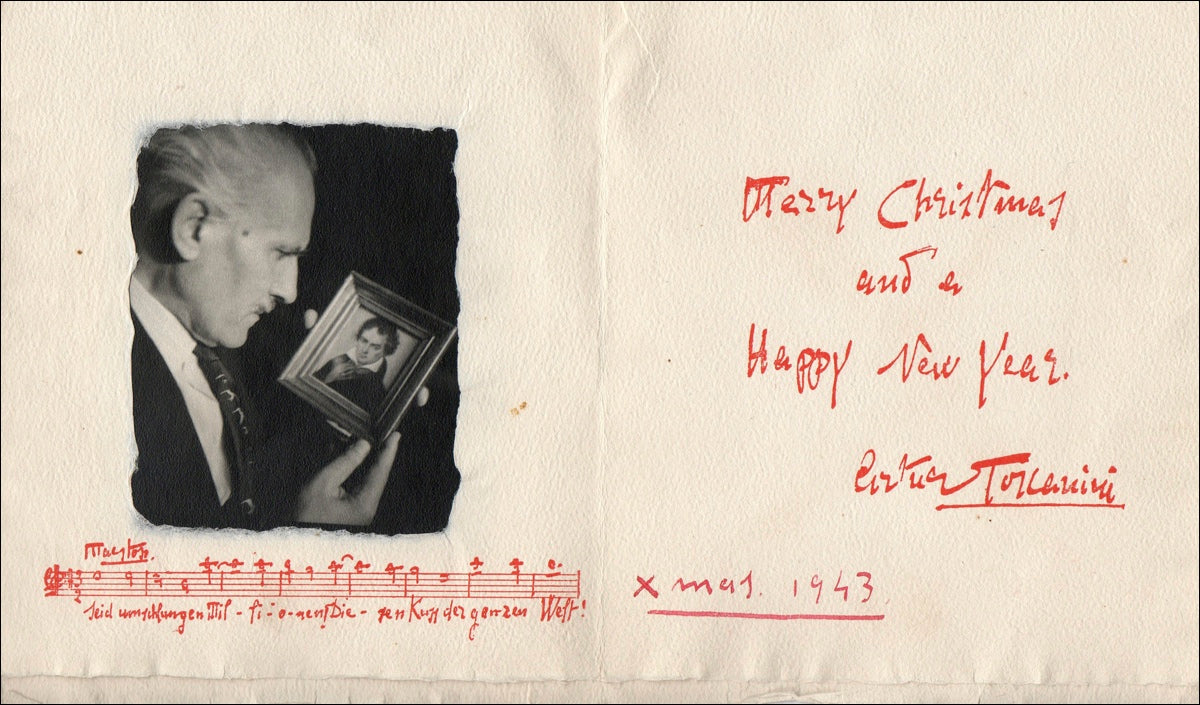 Maestoso.
Seid umschlungen Mil - li - o - nen! Die - sen Kuss der ganzen Welt!
Merry Christmas
and a
Happy New Year.
Arturo Toscanini
Xmas. 1943.